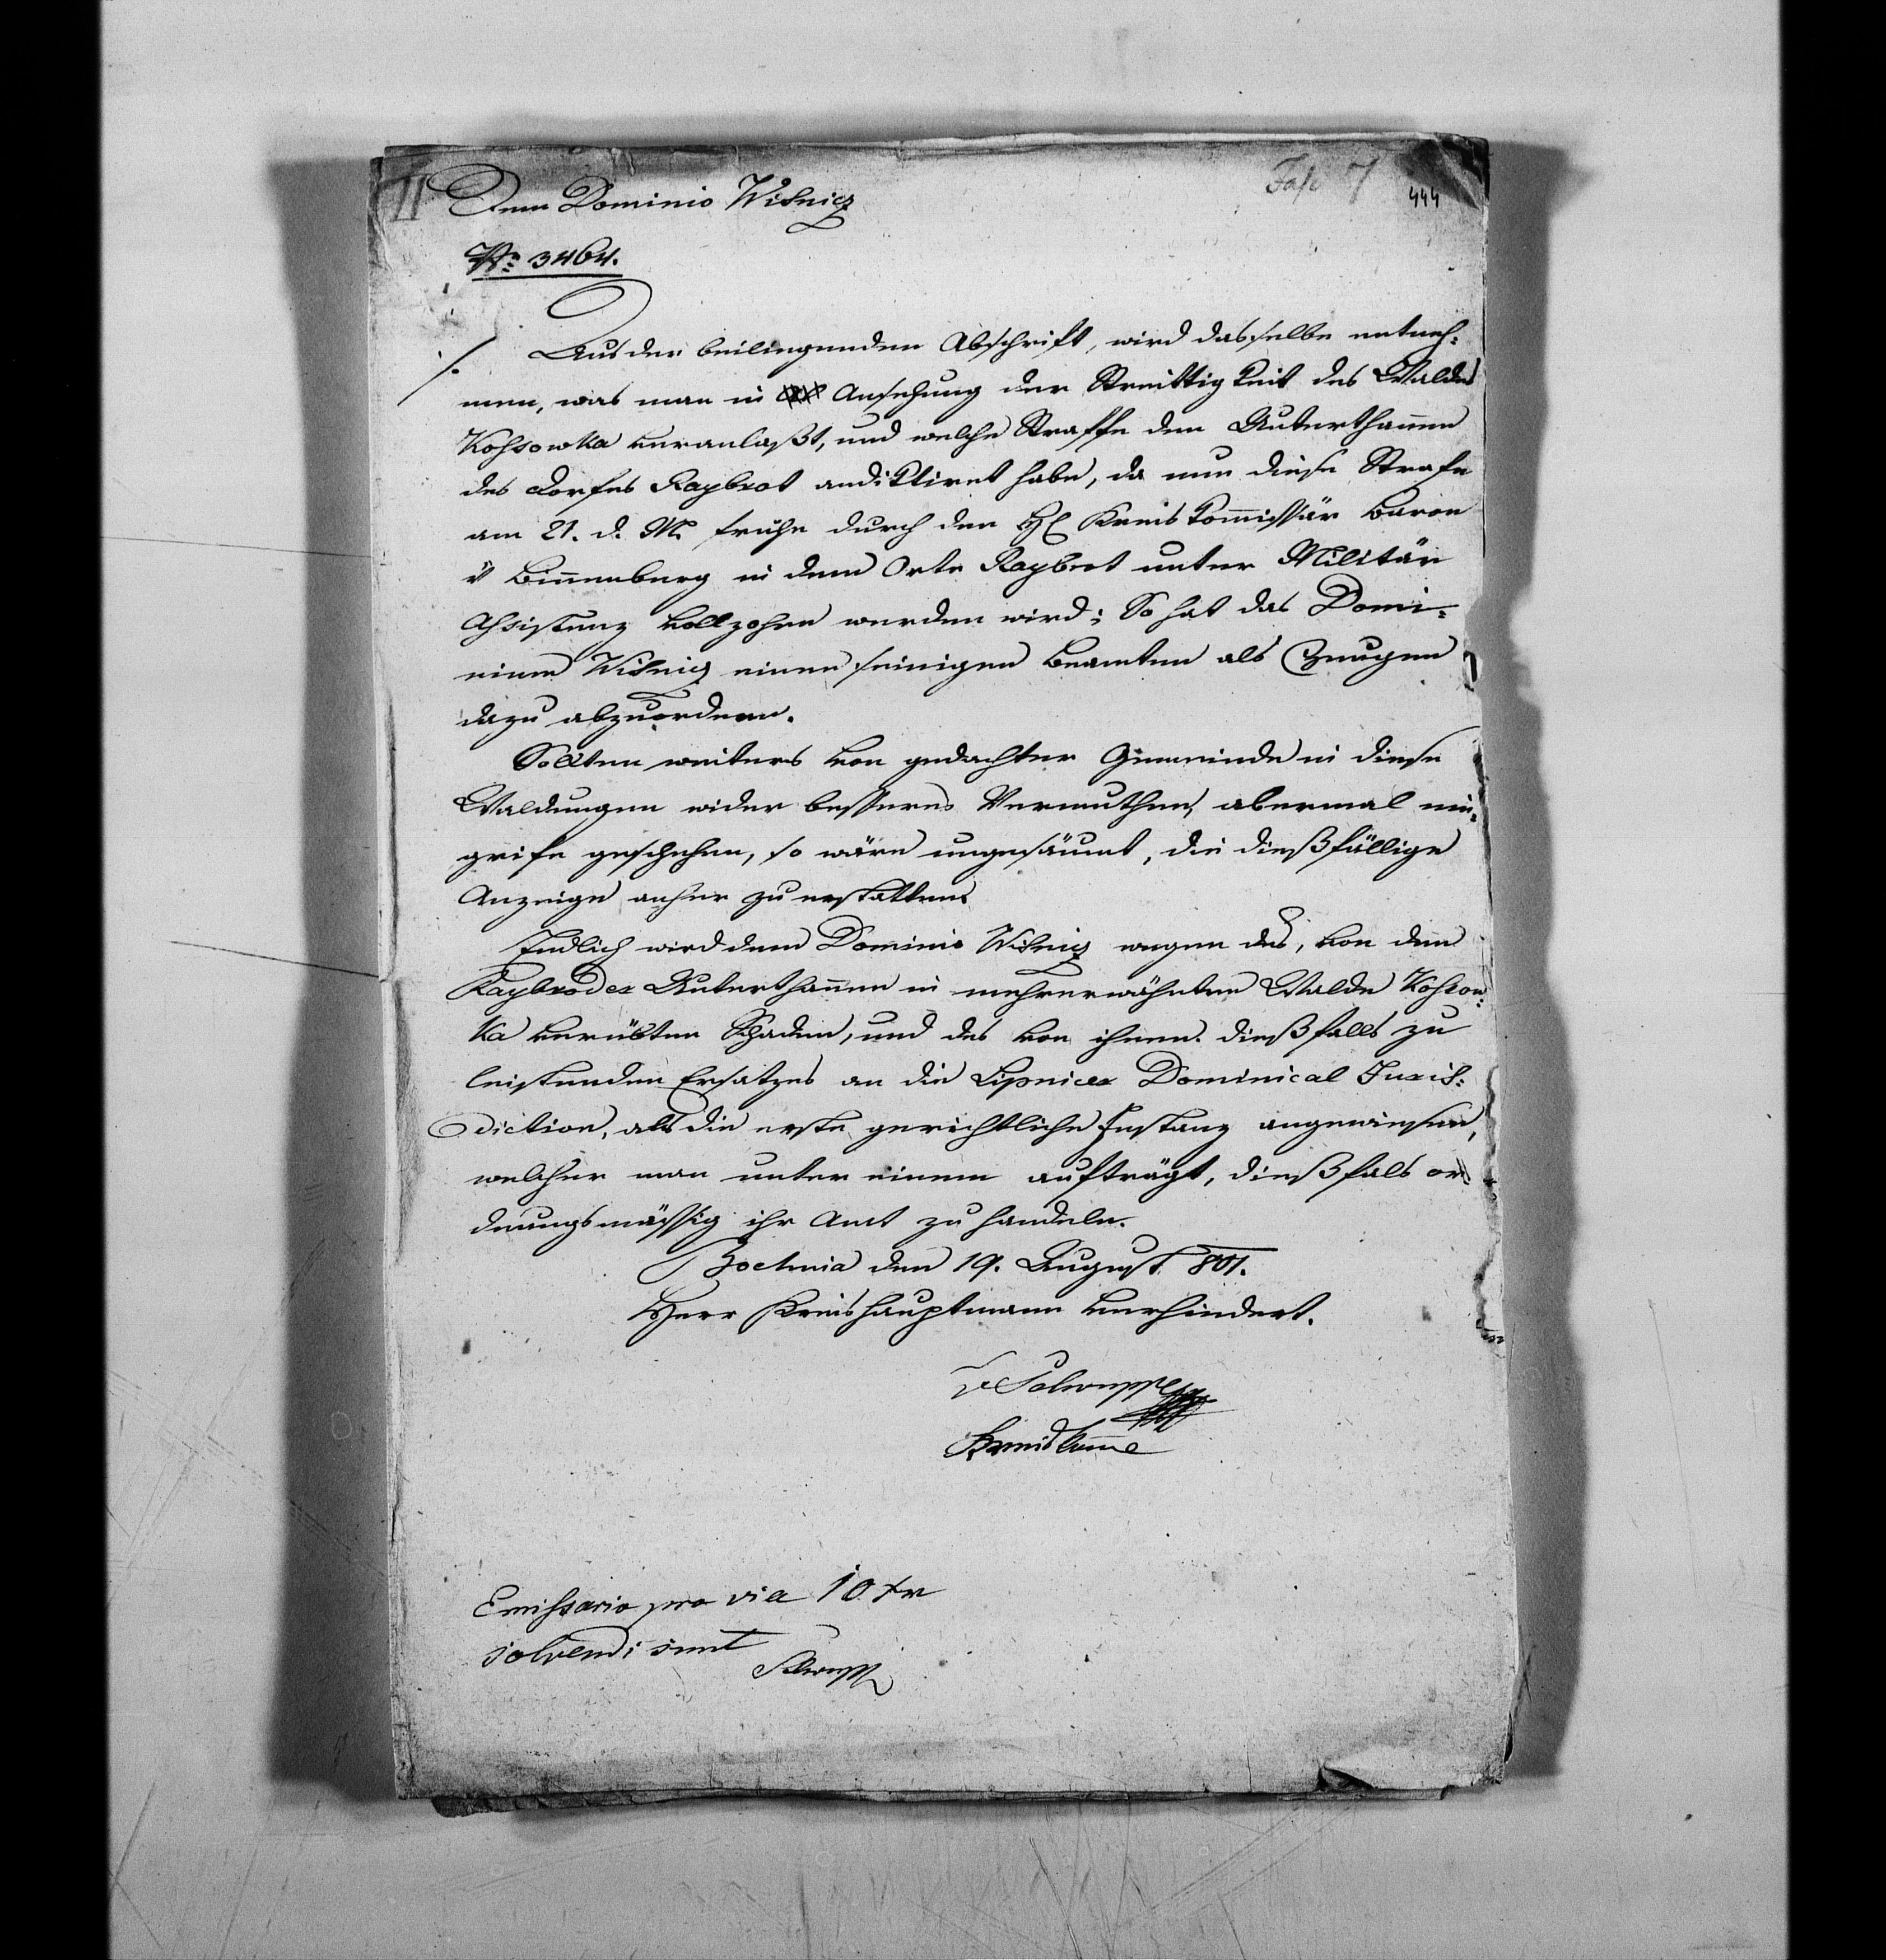 II Dem Dominio Wisnicz
Fasc 7
444
Nr. 3464.
Aus der beiliegenden Abschrift, wird dasselbe entneh-
men, was man in Ansehung der Streittigkeit des Waldes
Kohsowka veranlaßt, und welche Straffe den Unterthannen
des Dorfes Raybrot andiktiret habe, da nun diese Strafe
am 21. d. M. frühe durch den H. Kreiskommissär Baron
v Binnenburg in dem Orte Raybrot unter Militär
Assistenz vollzohen werden wird; So hat das Domi-
nium Wisnicz einen seinigen Beamten als Zeugen
dazu abzuordnen.
Sollten weiters von gedachter Gemeinde in diese
Waldungen wider besseres Vermuthen, abermal ein-
grife geschehen, so wäre ungesäumt, die dießfällige
Anzeige anher zu erstatten.
Endlich wird dem Dominio Wisnicz wegen des, von den
Raybroder Unterthannen in mehrerwähnten Walde Kohsow-
ka verübten Schaden, und des von ihnen dießfalls zu
leistenden Ersatzes an die Lipnicer Dominical Juris-
diction, als die erste gerichtliche Instanz angewiesen,
welcher man unter einem aufträgt, dießfals or
dnungsmässig ihr Amt zu handeln.
Bochnia den 19. August 801.
Herr Kreishauptmann verhindert.
Kreiskomme
Emissario pro via 10 xr
solvendi sunt